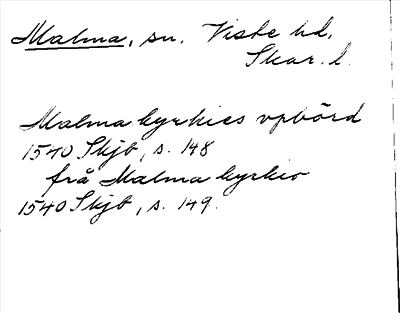 Malma, sn. Viste hd,
Skar. l.
Malma kyrkies vpbörd
1540 Skjb, s. 148
frå Malma kyrkio
1540 Skjb, s. 149.